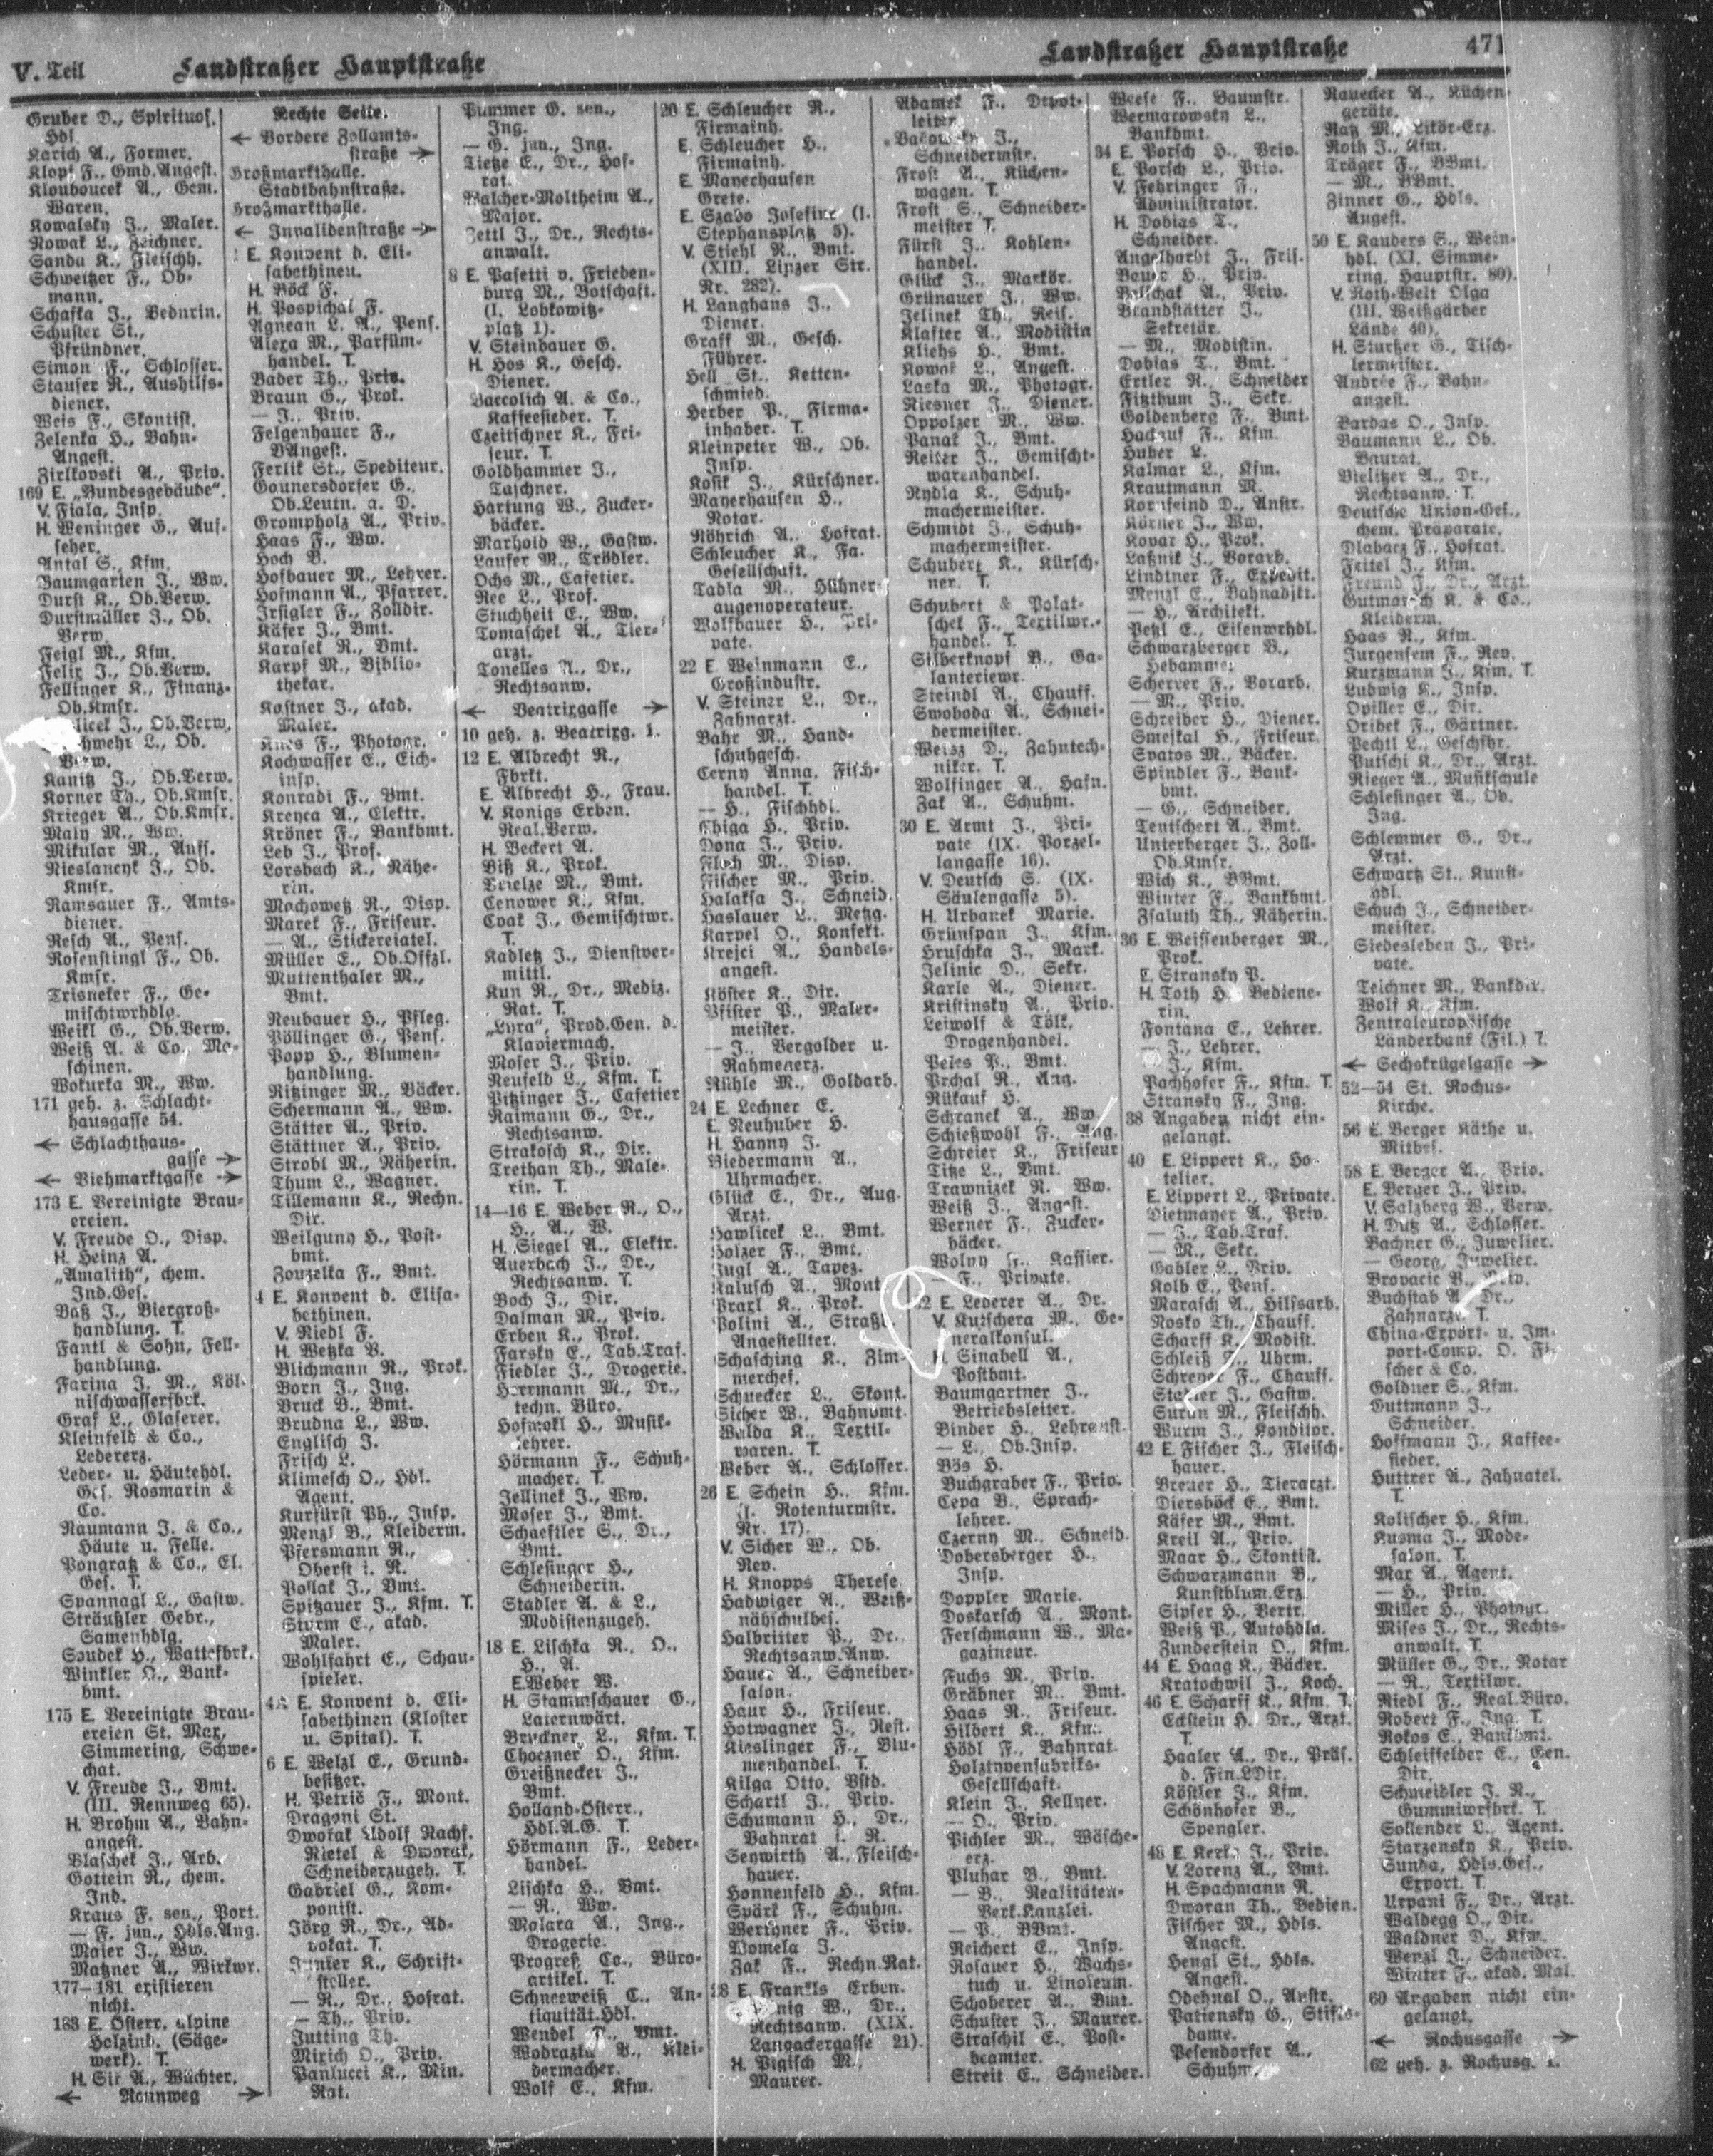 V. Teil
Landstraßer Hauptstraße
Landstraßer Hauptstraße
471
Gruber D., Spirituos.
Hdl.
Karich A., Former.
Klopf F., Gmd.Angest.
Klouboucek A., Gem.
Waren.
Kowalsky J., Maler.
Nowak L., Zeichner.
Sandu K., Fleischh.
Schweitzer F., Ob-
mann.
Schafka J., Bednrin.
Schuster St.,
Pfründner.
Simon F., Schlosser.
Stauser R., Aushilfs-
diener.
Weis F., Skontist.
Zelenka H., Bahn-
Angest.
Zirlkovski A., Priv.
169 E. „Bundesgebäude“.
V. Fiala, Insp.
H. Weninger G., Auf-
seher.
Antal S., Kfm.
Baumgarten J., Ww.
Durst K., Ob.Verw.
Durstmüller J., Ob.
Verw.
Feigl M., Kfm.
Felix J., Ob.Verw.
Fellinger K., Finanz-
Ob.Kmsr.
J., Ob.Verw.
L., Ob.
Verw.
Kanitz J., Ob.Verw.
Korner Th., Ob.Kmsr.
Krieger A., Ob.Kmsr.
Maly M., Ww.
Mikular M., Auff.
Nieslancyk J., Ob.
Kmsr.
Ramsauer F., Amts-
diener.
Resch A., Pens.
Rosenstingl F., Ob.
Kmsr.
Trisneker F., Ge-
mischtwrhdlg.
Weikl G., Ob.Verw.
Weiß A. & Co., Ma-
schinen.
Wokurka M., Ww.
171 geh. z. Schlacht-
hausgasse 54.
← Schlachthaus-
gasse →
← Viehmarktgasse →
173 E. Vereinigte Brau-
ereien.
V. Freude O., Disp.
H. Heinz A.
„Amalith“, chem.
Ind.Ges.
Baß J., Biergroß-
handlung. T.
Fantl & Sohn, Fell-
handlung.
Farina J. M., Köl-
nischwasserfbrk.
Graf L., Glaserer.
Kleinfeld & Co.,
Ledererz.
Leder- u. Häutehdl.
Ges. Rosmarin &
Co.
Naumann J. & Co.,
Häute u. Felle.
Pongratz & Co., El.
Ges. T.
Spannagl L., Gastw.
Sträußler Gebr.,
Samenhdlg.
Soudek H., Wattefbrk.
Winkler O., Bank-
bmt.
175 E. Vereinigte Brau-
ereien St. Marx,
Simmering, Schwe-
chat.
V. Freude J., Bmt.
(III. Rennweg 65).
H. Brohm A., Bahn-
angest.
Blaschek J., Arb.
Gottein R., chem.
Ind.
Kraus F. sen., Port.
— F. jun., Hdls.Ang.
Maier J., Ww.
Matzner A., Wirkwr.
177—181 existieren
nicht.
183 E. Österr. alpine
Holzind. (Säge-
werk). T.
H. Sir A., Wächter.
← Rennweg →
Rechte Seite.
← Vordere Zollamts-
straße →
Großmarkthalle.
Stadtbahnstraße.
Großmarkthalle.
← Invalidenstraße →
E. Konvent d. Eli-
sabethinen.
H. Böck F.
H. Pospichal F.
Agnean L. A., Pens.
Alexa M., Parfüm-
handel. T.
Bader Th., Priv.
Braun G., Prok.
— J., Priv.
Felgenhauer F.,
BAngest.
Ferlik St., Spediteur.
Gounersdorfer G.,
Ob.Leutn. a. D.
Grompholz A., Priv.
Haas F., Ww.
Hoch B.
Hofbauer M., Lehrer.
Hofmann A., Pfarrer.
Irsigler F., Zolldir.
Käfer J., Bmt.
Karasek R., Bmt.
Karpf M., Biblio-
thekar.
Kostner J., akad.
Maler.
F., Photogr.
Kochwasser E., Eich-
insp.
Konradi F., Bmt.
Kreyca A., Elektr.
Kröner F., Bankbmt.
Leb J., Prof.
Lorsbach K., Nähe-
rin.
Mochowetz R., Disp.
Marek F., Friseur.
— A., Stickereiatel.
Müller E., Ob.Offzl.
Muttenthaler M.,
Bmt.
Neubauer H., Pfleg.
Pöllinger G., Pens.
Popp H., Blumen-
handlung.
Ritzinger M., Bäcker.
Schermann A., Ww.
Stätter A., Priv.
Stättner A., Priv.
Strobl M., Näherin.
Thum L., Wagner.
Tillemann K., Rechn.
Dir.
Weilguny H., Post-
bmt.
Zouzelka F., Bmt.
4 E. Konvent d. Elisa-
bethinen.
V. Riedl F.
H. Wetzka V.
Blichmann R., Prok.
Born J., Ing.
Bruck B., Bmt.
Brudna L., Ww.
Englisch J.
Frisch L.
Klimesch O., Hdl.
Agent.
Kurfürst Ph., Insp.
Menzl B., Kleiderm.
Pfersmann R.,
Oberst i. R.
Pollak J., Bmt.
Spitzauer J., Kfm. T.
Sturm E., akad.
Maler.
Wohlfahrt E., Schau-
spieler.
4A E. Konvent d. Eli-
sabethinen (Kloster
u. Spital). T.
6 E. Welzl E., Grund-
besitzer.
H. Petrič F., Mont.
Dragoni St.
Dworak Adolf Nachf.
Rietel & Dworak,
Schneiderzugeh. T.
Gabriel G., Kom-
ponist.
Jörg R., Dr., Ad-
vokat. T.
Junker K., Schrift-
steller.
— R., Dr., Hofrat.
— Th., Priv.
Jutting Th.
Mirich O., Priv.
Panlucci K., Min.
Rat.
Pummer G. sen.,
Ing.
— G. jun., Ing.
Tietze E., Dr., Hof-
rat.
Walcher-Moltheim A.,
Major.
Zettl J., Dr., Rechts-
anwalt.
8 E. Pasetti v. Frieden-
burg M., Botschaft.
(I. Lobkowitz-
platz 1).
V. Steinbauer G.
H. Hos K., Gesch.
Diener.
Baccolich A. & Co.,
Kaffeesieder. T.
Czeitschner K., Fri-
seur. T.
Goldhammer J.,
Taschner.
Hartung W., Zucker-
bäcker.
Marhold W., Gastw.
Laufer M., Trödler.
Ochs M., Cafetier.
Ree L., Prof.
Stuchheit E., Ww.
Tomaschek A., Tier-
arzt.
Tonelles A., Dr.,
Rechtsanw.
← Beatrixgasse →
10 geh. z. Beatrixg. 1.
12 E. Albrecht R.,
Fbrkt.
E. Albrecht H., Frau.
V. Konigs Erben.
Real.Verw.
H. Beckert A.
Biß K., Prok.
M., Bmt.
Cenower K., Kfm.
Cvak J., Gemischtwr.
T.
Kadletz J., Dienstver-
mittl.
Kun R., Dr., Mediz.
Rat. T.
„Lyra“, Prod.Gen. d.
Klaviermach.
Moser J., Priv.
Neufeld L., Kfm. T.
Pitzinger J., Cafetier
Raimann G., Dr.,
Rechtsanw.
Strakosch K., Dir.
Trethan Th., Male-
rin. T.
14—16 E. Weber R., O.,
H., A., W.
H. Siegel A., Elektr.
Auerbach J., Dr.,
Rechtsanw. T.
Boch J., Dir.
Dalman M., Priv.
Erben K., Prok.
Farsky E., Tab.Traf.
Fiedler J., Drogerie.
Herrmann M., Dr.,
techn. Büro.
Hofmokl H., Musik-
lehrer.
Hörmann F., Schuh-
macher. T.
Jellinek J., Ww.
Moser J., Bmt.
Schaeftler S., Dr.,
Bmt.
Schlesinger H.,
Schneiderin.
Stadler A. & L.,
Modistenzugeh.
18 E. Lischka R., O.,
H., A.
E. Weber W.
H. Stammschauer G.,
Laternwärt.
Bruckner L., Kfm. T.
Choczner O., Kfm.
Greißnecker J.,
Bmt.
Holland-Österr.,
Hdl.A.G. T.
Hörmann F., Leder-
handel.
Lischka H., Bmt.
— R., Ww.
Molara A., Ing.,
Drogerie.
Progreß Co., Büro-
artikel. T.
Schneeweiß C., An-
tiquität.Hdl.
Wendel, Bmt.
Wodrazka, Klei-
dermacher.
Wolf E., Kfm.
20 E. Schleucher R.,
Firmainh.
E. Schleucher H.,
Firmainh.
E. Mayerhausen
Grete.
E. Szabo Josefine (I.
Stephansplatz 5).
V. Stiehl R., Bmt.
(XIII. Linzer Str.
Nr. 282).
H. Langhans J.,
Diener.
Graff M., Gesch.
Führer.
Hell St., Ketten-
schmied.
Herber P., Firma-
inhaber. T.
Kleinpeter W., Ob.
Insp.
Kosik J., Kürschner.
Mayerhausen H.,
Notar.
Röhrich A., Hofrat.
Schleucher K., Fa.
Gesellschaft.
Tabla M., Hühner-
augenoperateur.
Wolfbauer H., Pri-
vate.
22 E. Weinmann E.,
Großindustr.
V. Steiner L., Dr.,
Zahnarzt.
Bahr M., Hand-
schuhgesch.
Cerny Anna, Fisch-
handel. T.
— H., Fischhdl.
Chiga H., Priv.
Dona J., Priv.
Floch M., Disp.
Fischer M., Priv.
Halaksa J., Schneid.
Haslauer L., Metzg.
Karpel O., Konfekt.
Krejci A., Handels-
angest.
Köster K., Dir.
Pfister P., Maler-
meister.
— J., Vergolder u.
Rahmenerz.
Rühle M., Goldarb.
24 E. Lechner E.
E. Neuhuber H.
H. Hanny J.
Biedermann A.,
Uhrmacher.
Glück E., Dr., Aug.
Arzt.
Hawlicek L., Bmt.
Holzer F., Bmt.
Jugl A., Tapez.
Kalusch A., Mont.
Praxl K., Prok.
Polini A., Straßb.
Angestellter.
Schasching K., Zim-
merches.
Schuecker L., Skont.
Sicher W., Bahnbmt.
Walda K., Textil-
waren. T.
Weber A., Schlosser.
26 E. Schein H., Kfm.
(I. Rotenturmstr.
Nr. 17).
V. Sicher W., Ob.
Rev.
H. Knopps Therese.
Hadwiger A., Weiß-
nähschulbes.
Halbritter P., Dr.,
Rechtsanw.Anw.
Hauer A., Schneider-
salon.
Haur H., Friseur.
Hotwagner J., Rest.
Kieslinger F., Blu-
menhandel. T.
Kilga Otto, Bstd.
Schartl J., Priv.
Schumann H., Dr.,
Bahnrat i. R.
Seywirth A., Fleisch-
hauer.
Honnenfeld H., Kfm.
Spärk F., Schuhm.
F., Priv.
Womela J.
Zak F., Rechn.Rat.
28 E. Frankls Erben.
W., Dr.,
Rechtsanw. (XIX.
Langackergasse 21).
H. Pigisch M.,
Maurer.
Adamek F., Depot-
leiter.
J.,
Schneidermstr.
Frost A., Küchen-
wagen. T.
Frost S., Schneider-
meister T.
Fürst J., Kohlen-
handel.
Glück J., Markör.
Grünauer J., Ww.
Jelinek Th., Reis.
Klafter A., Modistin
Kliehs H., Bmt.
Kowak L., Angest.
Laska M., Photogr.
Riesner J., Diener.
Oppolzer M., Ww.
Panak J., Bmt.
Reiter J., Gemischt-
warenhandel.
Rydla K., Schuh-
machermeister.
Schmidt J., Schuh-
machermeister.
Schubert K., Kürsch-
ner. T.
Schubert & Polat-
schek F., Textilwr.-
handel. T.
Silberknopf B., Ga-
lanteriewr.
Steindl A., Chauff.
Swoboda A., Schnei-
dermeister.
Weisz D., Zahntech-
niker. T.
Wolfinger A., Hafn.
Zak A., Schuhm.
30 E. Armt J., Pri-
vate (IX. Porzel-
langasse 16).
V. Deutsch S. (IX.
Säulengasse 5).
H. Urbanek Marie.
Grünspan J., Kfm.
Hruschka J., Mark.
Jelinic D., Sekr.
Karle A., Diener.
Kristinsky A., Priv.
Leiwolf & Tölk,
Drogenhandel.
Peles P., Bmt.
Prchal R., Ang.
Rükauf H.
Schranek A., Ww.
Schießwohl F., Ang.
Schreier K., Friseur
Titze L., Bmt.
Trawnizek R., Ww.
Weiß J., Angest.
Werner F., Zucker-
bäcker.
Wolny F., Kassier.
— F., Private.
32 E. Lederer A., Dr.
V. Kutschera M., Ge-
neralkonsul.
H. Sinabell A.,
Postbmt.
Baumgartner J.,
Betriebsleiter.
Binder H., Lehranst.
— L., Ob.Insp.
Bös H.
Buchgraber F., Priv.
Cepa B., Sprach-
lehrer.
Czerny M., Schneid.
Dobersberger H.,
Insp.
Doppler Marie.
Doskarsch A., Mont.
Ferschmann W., Ma-
gazineur.
Fuchs M., Priv.
Gräbner M., Bmt.
Haas R., Friseur.
Hilbert K., Kfm.
Hödl F., Bahnrat.
Holztypenfabriks-
Gesellschaft.
Klein J., Kellner.
— O., Priv.
Pichler M., Wäsche-
erz.
Pluhar B., Bmt.
— B., Realitäten-
Verk.Kanzlei.
— P., BBmt.
Reichert E., Insp.
Rosauer H., Wachs-
tuch u. Linoleum.
Schoberer A., Bmt.
Schuster J., Maurer.
Straschil E., Post-
beamter.
Streit E., Schneider.
Weese F., Baumstr.
Wermarowsky L.,
Bankbmt.
34 E. Porsch H., Priv.
E. Porsch L., Priv.
V. Fehringer F.,
Administrator.
H. Dobias T.,
Schneider.
Angelhardt J., Fris.
Bauer H., Priv.
A., Priv.
Brandstätter J.,
Sekretär.
— M., Modistin.
Dobias T., Bmt.
Ertler R., Schneider
Fitzthum J., Sekr.
Goldenberg F., Bmt.
Hackauf F., Kfm.
Huber L.
Kalmar L., Kfm.
Krautmann M.
Kornfeind D., Anstr.
Körner J., Ww.
Kovar H., Prok.
Laßnik J., Vorarb.
Lindtner F., Expedit.
Menzl E., Bahnadjkt.
— H., Architekt.
Petzl E., Eisenwrhdl.
Schwarzberger B.,
Hebamme.
Scherrer F., Vorarb.
— M., Priv.
Schreiber H., Diener.
Smejkal H., Friseur.
Svatos M., Bäcker.
Spindler F., Bank-
bmt.
— G., Schneider.
Tentschert A., Bmt.
Unterberger J., Zoll-
Ob.Kmsr.
Wich K., BBmt.
Winter F., Bankbmt.
Zsaluth Th., Näherin.
36 E. Weissenberger M.,
Prok.
E. Stransky P.
H. Toth H., Bediene-
rin.
Fontana E., Lehrer.
— J., Lehrer.
— J., Kfm.
Pachhofer F., Kfm. T.
Stransky F., Ing.
38 Angaben nicht ein-
gelangt.
40 E. Lippert K., Ho-
telier.
E. Lippert L., Private.
Dietmayer A., Priv.
— J., Tab.Traf.
— M., Sekr.
Gabler L., Priv.
Kolb E., Pens.
Marasch A., Hilfsarb.
Nosko Th., Chauff.
Scharff K., Modist.
Schleiß, Uhrm.
Schreyer F., Chauff.
J., Gastw.
Suran M., Fleischh.
Wurm J., Konditor.
42 E. Fischer J., Fleisch-
hauer.
Breuer H., Tierarzt.
Diersböck E., Bmt.
Käfer M., Bmt.
Kreil A., Priv.
Maar H., Skontist.
Schwarzmann B.,
Kunstblum.Erz
Sipser H., Vertr.
Weiß P., Autohdla.
Zunderstein O., Kfm.
44 E. Haag K., Bäcker.
Kratochwil J., Koch.
46 E. Scharff K., Kfm. T.
Eckstein H., Dr., Arzt.
T.
Haaler A., Dr., Präs.
d. Fin.LDir.
Köstler J., Kfm.
Schönhofer B.,
Spengler.
48 E. J., Priv.
V. Lorenz A., Bmt.
H. Spachmann R.
Dworan Th., Bedien.
Fischer M., Hdls.
Angest.
Hengl St., Hdls.
Angest.
Odehnal O., Anstr.
Patiensky G., Stifts-
dame.
Pesendorfer A.,
Schuhm.
Rauecker A., Küchen-
geräte.
Ratz M., Likör-Erz.
Roth J., Kfm.
Träger F., BBmt.
— M., BBmt.
Zinner G., Hdls.
Angest.
50 E. Kauders S., Wein-
hdl. (XI. Simme-
ring. Hauptstr. 80).
V. Roth-Welt Olga
(III. Weißgärber
Lände 40).
H. Sturtzer G., Tisch-
lermeister.
Andrée F., Bahn-
angest.
Bardas O., Insp.
Baumann L., Ob.
Baurat.
Bielitzer A., Dr.,
Rechtsanw. T.
Deutsche Union-Ges.,
chem. Präparate.
Dlabacz F., Hofrat.
Feitel J., Kfm.
Freund J., Dr., Arzt.
K. & Co.,
Kleiderm.
Haas R., Kfm.
Jurgensem F., Rev.
Kurzmann J., Kfm. T.
Ludwig K., Insp.
Opiller E., Dir.
Oridek F., Gärtner.
Pechtl L., Geschfhr.
Putschi K., Dr., Arzt.
Rieger A., Musikschule
Schlesinger A., Ob.
Ing.
Schlemmer G., Dr.,
Arzt.
Schwartz St., Kunst-
hdl.
Schuch J., Schneider-
meister.
Siedesleben J., Pri-
vate.
Teichner M., Bankdir.
Wolf K., Kfm.
Zentraleuropäische
Länderbank (Fil.) T.
← Sechskrügelgasse →
52—54 St. Rochus-
Kirche.
56 E. Berger Käthe u.
Mitbes.
58 E. Berger A., Priv.
E. Berger J., Priv.
V. Salzberg W., Verw.
H. Dutz A., Schlosser.
Bachner G., Juwelier.
— Georg, Juwelier.
Brovacic B., Priv.
Buchstab A., Dr.,
Zahnarzt. T.
China-Export- u. Im-
port-Comp. O. Fi-
scher & Co.
Goldner S., Kfm.
Guttmann J.,
Schneider.
Hoffmann J., Kaffee-
sieder.
Huttrer A., Zahnatel.
T.
Kolischer H., Kfm.
Kusma J., Mode-
salon. T.
Max A., Agent.
— H., Priv.
Miller H., Photogr.
Mises J., Dr., Rechts-
anwalt. T.
Müller G., Dr., Notar
— R., Textilwr.
Riedl F., Real.Büro.
Robert F., Ing. T.
Rokos E., Bankbmt.
Schleiffelder E., Gen.
Dir.
Schmeidler J. R.,
Gummiwrfbrk. T.
Sollender L., Agent.
Starzensky K., Priv.
Sunda, Hdls.Ges.,
Export. T.
Urpani F., Dr., Arzt.
Waldegg O., Dir.
Waldner D., Kfm.
Wenzl J., Schneider.
Winter F., akad. Mal.
60 Angaben nicht ein-
gelangt.
← Rochusgasse →
62 geh. z. Rochusg. 1.